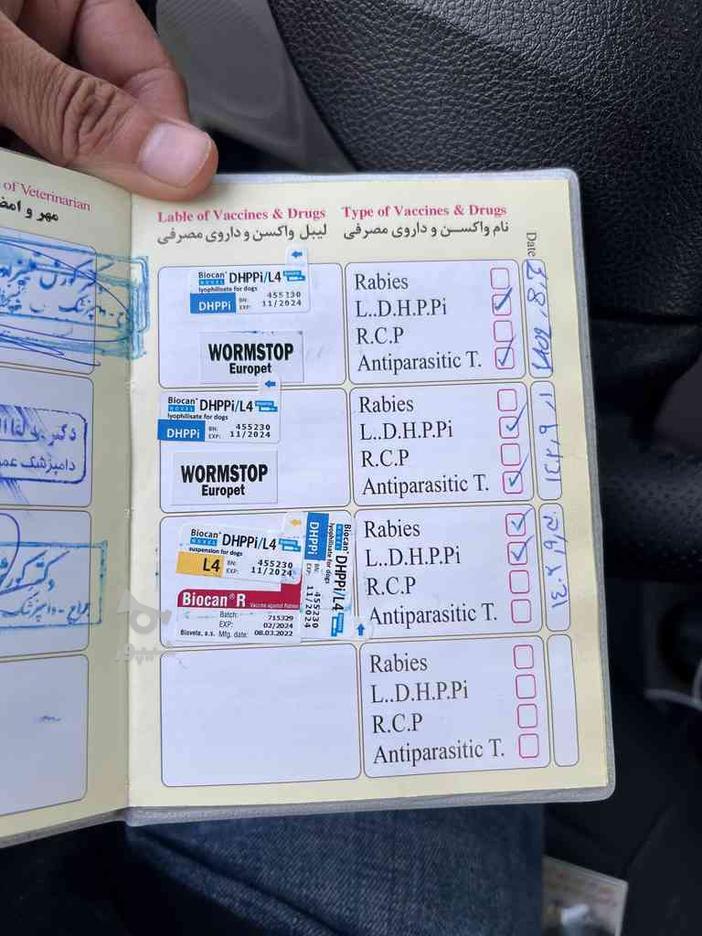 of Veterinarian
Lable of Vaccines & Drugs
Type of Vaccines & Drugs
Date
مهر و
لیبل واکسن و داروی مصرفی
نام واکسن و داروی مصرفی
Biocan NOVEL DHPPi/L4
lyophilisate for dogs
DHPPi
BN: 455130
EXP: 11/2024
WORMSTOP
Europet
Rabies
L..D.H.P.Pi
R.C.P
Antiparasitic T.
Biocan NOVEL DHPPi/L4
lyophilisate for dogs
DHPPi
BN: 455230
EXP: 11/2024
WORMSTOP
Europet
Rabies
L..D.H.P.Pi
R.C.P
Antiparasitic T.
دامپزشک
Biocan NOVEL DHPPi/L4
suspension for dogs
L4
BN: 455230
EXP: 11/2024
Biocan NOVEL DHPPi/L4
lyophilisate for dogs
DHPPi
BN: 455230
EXP: 11/2024
Biocan R
Vaccine against Rabies
Batch: 715329
EXP: 02/2024
Bioveta, a.s. Mfg. date: 08.03.2022
Rabies
L..D.H.P.Pi
R.C.P
Antiparasitic T.
دیپور
Rabies
L..D.H.P.Pi
R.C.P
Antiparasitic T.